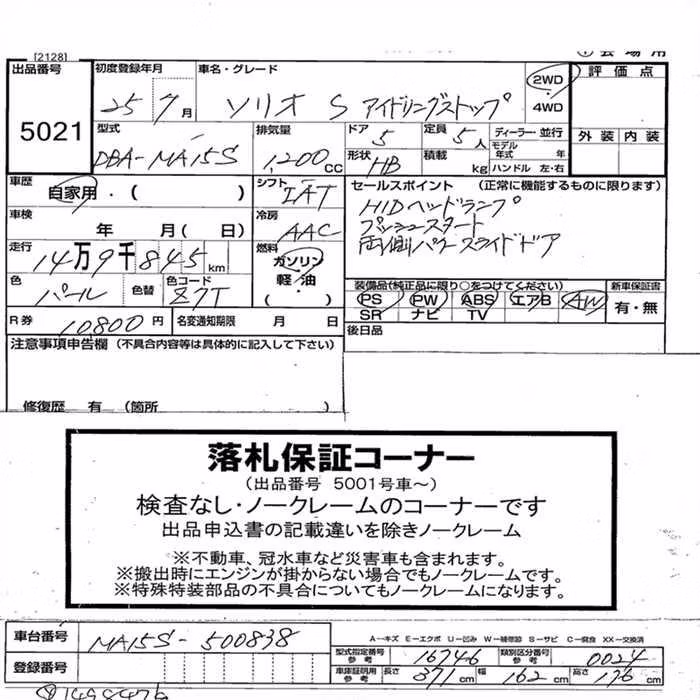 [2128]
出品番号 5021
初度登録年月 25 7月
車名・グレード ソリオ S アイドリングストップ
2WD・4WD
評価点
外装 内装
型式 DBA-MA15S
排気量 1,200cc
ドア 5
定員 5人
ディーラー・並行
モデル年式 年
形状 HB
積載 kg
ハンドル 左・右
車歴 自家用・( )
シフト IAT
セールスポイント (正常に機能するものに限ります)
HIDヘッドランプ
プッシュスタート
両側パワースライドドア
車検 年 月( 日)
冷房 AAC
走行 14万9千845km
燃料 ガソリン 軽・油 ( )
色 パール
色替
色コード Z7T
装備品(純正品に限り○をつけてください)
PS PW ABS エアB AW
SR ナビ TV
新車保証書 有・無
R券 10800円
名変通知期限 月 日
後日品
注意事項申告欄 (不具合内容等は具体的に記入して下さい)
修復歴 有 (箇所 )
落札保証コーナー
(出品番号 5001号車〜)
検査なし・ノークレームのコーナーです
出品申込書の記載違いを除きノークレーム
※不動車、冠水車など災害車も含まれます。
※搬出時にエンジンが掛からない場合でもノークレームです。
※特殊特装部品の不具合についてもノークレームになります。
車台番号 MA15S-500838
A－キズ E－エクボ U－凹み W－補修跡 S－サビ C－腐食 XX－交換済
型式指定番号 参考 16746
類別区分番号 参考 0024
登録番号
車庫証明用 参考 長さ 371cm 幅 162cm 高さ 176cm